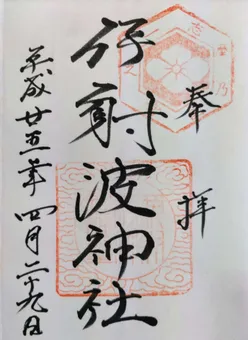 奉拝
伊射波神社
平成廿五年四月二十九日